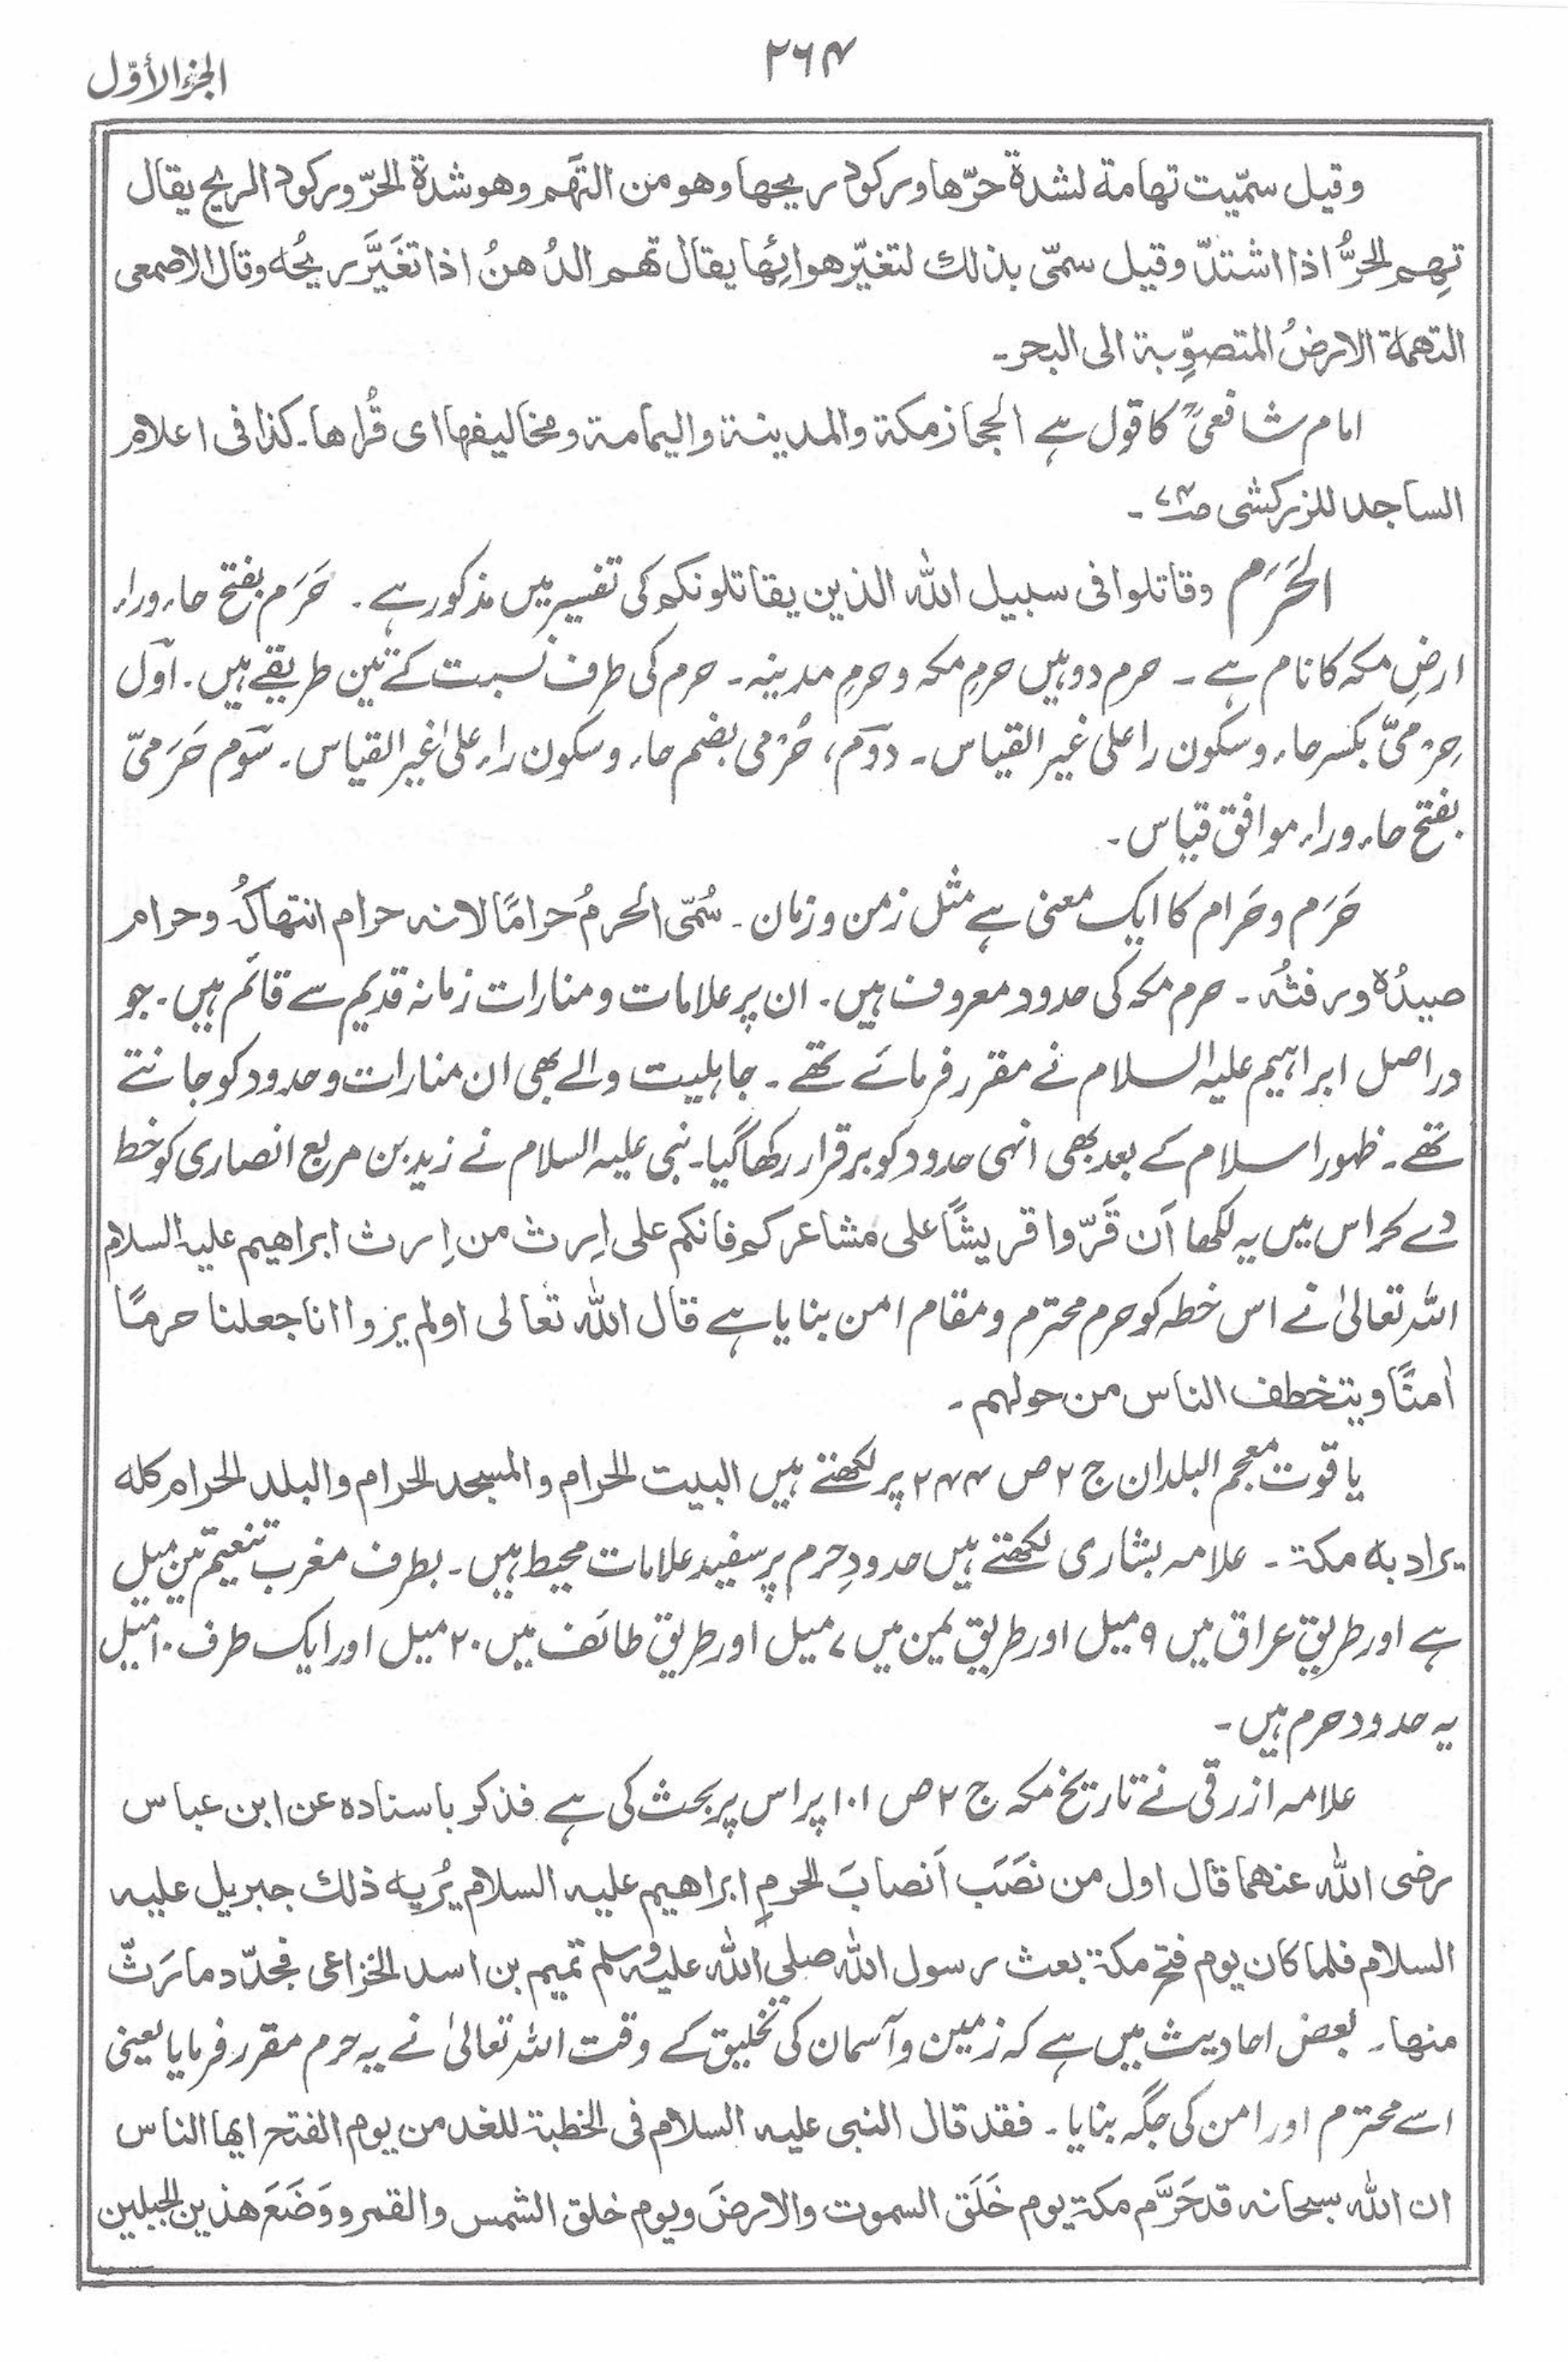 ۲۶۴
الجزء الأوّل
وقیل سمّیت تهامة لشدة حرّها ورکود ریحها وهو من التَّهَم وهو شدة الحرّ ورکود الریح یقال
تِهِم الحرُّ اذا اشتدّ وقیل سمّی بذلك لتغیّر هوائِها یقال تهم الدُهنُ اذا تغَیَّر ریحُه وقال الاصمعی
التهمة الارضُ المتصوِّبة الی البحر۔
امام شافعیؒ کا قول ہے الحجاز مکة والمدینة والیمامة ومخالیفها ای قُراها۔ کذا فی اعلام
الساجد للزرکشی
الحَرَم وقاتلوا فی سبیل اللّٰه الذین یقاتلونکم کی تفسیر میں مذکور ہے۔ حَرَم بفتح حاء وراء
ارضِ مکہ کا نام ہے۔ حرم دو ہیں حرمِ مکہ وحرمِ مدینہ۔ حرم کی طرف نسبت کے تین طریقے ہیں۔ اوّل
حِرْمیّ بکسر حاء وسکون را علی غیر القیاس۔ دوم، حُرْمی بضم حاء وسکون راء علیٰ غیر القیاس۔ سوم حَرَمیّ
بفتح حاء وراء موافق قیاس۔
حَرَم وحَرام کا ایک معنی ہے مثل زمن وزمان۔ سُمّی الحرمُ حرامًا لانه حرام انتهاکُه وحرام
صیدُه ورفثُه۔ حرم مکہ کی حدود معروف ہیں۔ ان پر علامات ومنارات زمانہ قدیم سے قائم ہیں۔ جو
دراصل ابراہیم علیہ السلام نے مقرر فرمائے تھے۔ جاہلیت والے بھی ان منارات وحدود کو جانتے
تھے۔ ظہور اسلام کے بعد بھی انہی حدود کو برقرار رکھا گیا۔ نبی علیہ السلام نے زید بن مربع انصاری کو خط
دے کر اس میں یہ لکھا اَن قَرّوا قریشًا علی مشاعرکم فانکم علی اِرث من اِرث ابراهیم علیہ السلام
اللہ تعالیٰ نے اس خطہ کو حرم محترم ومقام امن بنایا ہے قال اللّٰه تعالی اولم یروا انا جعلنا حرمًا
اٰمنًا ویتخطف الناس من حولهم۔
یاقوت معجم البلدان ج ۲ ص ۲۴۴ پر لکھتے ہیں البیت الحرام والمسجد الحرام والبلد الحرام کله
یراد به مکة۔ علامہ بشاری لکھتے ہیں حدودِ حرم پر سفید علامات محیط ہیں۔ بطرف مغرب تنعیم تین میل
ہے اور طریقِ عراق میں ۹ میل اور طریقِ یمن میں ۷ میل اور طریقِ طائف میں ۲۰ میل اور ایک طرف ۱۰ میل
یہ حدود حرم ہیں۔
علامہ ازرقی نے تاریخ مکہ ج ۲ ص ۱۰۱ پر اس پر بحث کی ہے فذکر باسناده عن ابن عباس
رضی اللّٰه عنهما قال اول من نصَبَ اَنصابَ الحرمِ ابراهیم علیہ السلام یُرِیه ذلك جبریل علیه
السلام فلما کان یوم فتح مکة بعث رسول اللّٰه صلی اللّٰه علیه وسلم تمیم بن اسد الخزاعی فجدّد ما رَثّ
منها۔ بعض احادیث میں ہے کہ زمین وآسمان کی تخلیق کے وقت اللہ تعالیٰ نے یہ حرم مقرر فرمایا یعنی
اسے محترم اور امن کی جگہ بنایا۔ فقد قال النبی علیه السلام فی الخطبة للغد من یوم الفتح ایها الناس
ان اللّٰه سبحانه قد حَرَّم مکة یوم خَلَق السموت والارضَ ویوم خلق الشمس والقمر ووَضَعَ هذین الجبلین